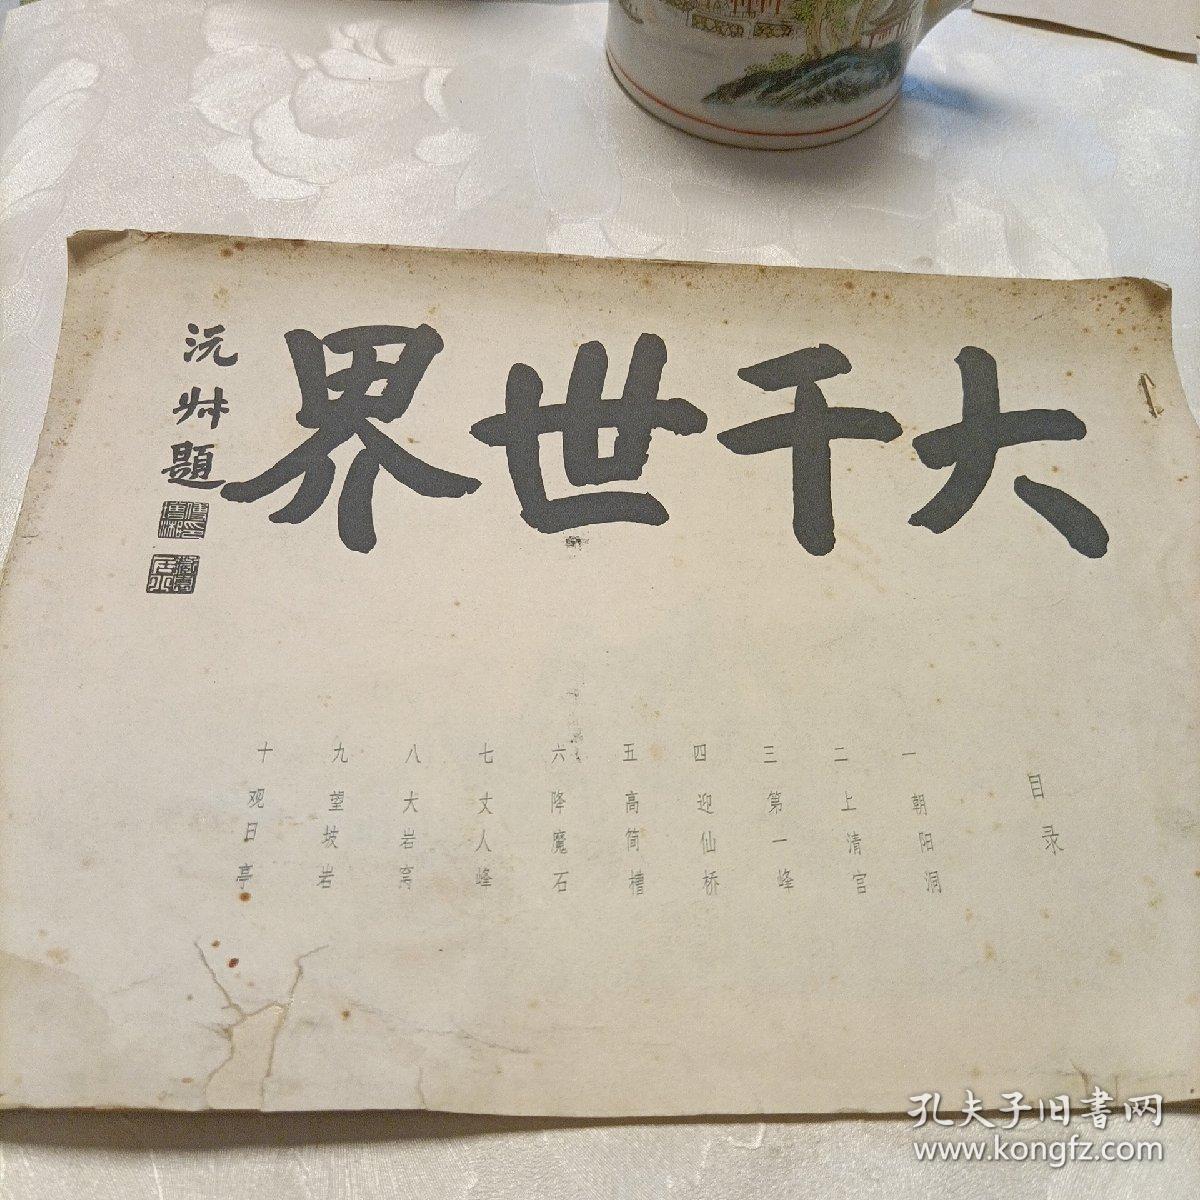 大千世界
沅叔題
目录
一 朝阳洞
二 上清宫
三 第一峰
四 迎仙桥
五 高简槽
六 降魔石
七 丈人峰
八 大岩窝
九 望坡岩
十 观日亭
孔夫子旧書网
www.kongfz.com